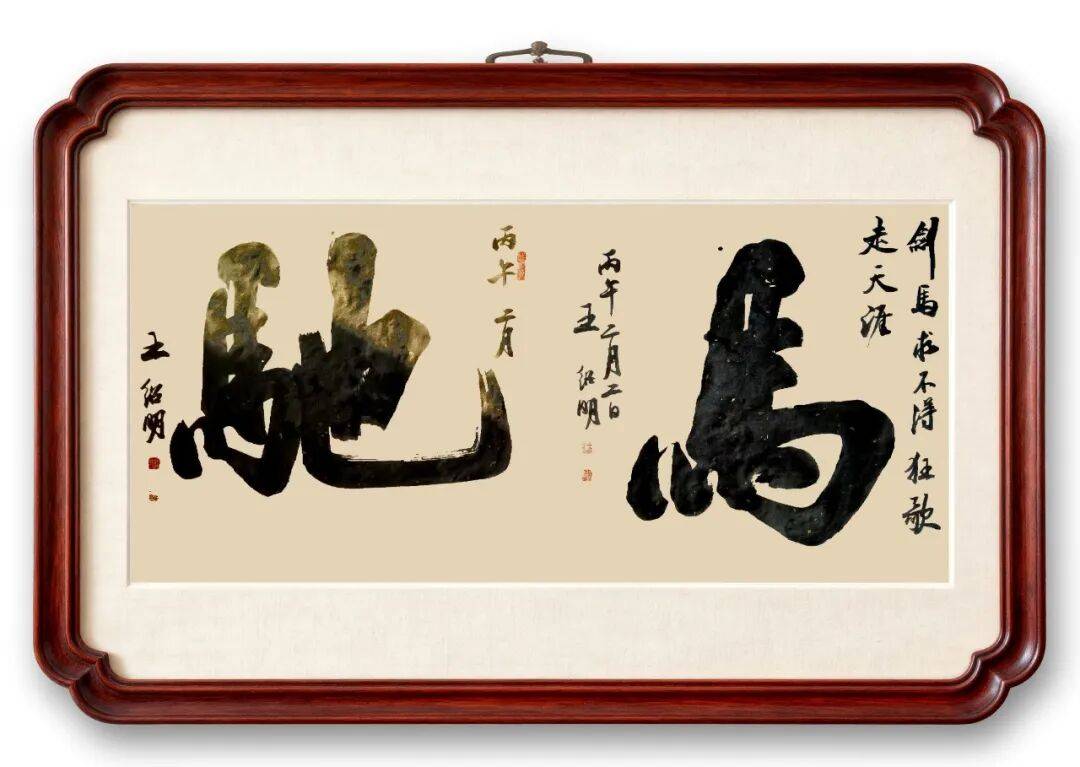 劍馬求不得狂歌
走天涯
馬
丙午二月二日
王紹明
丙午二月
馳
王紹明